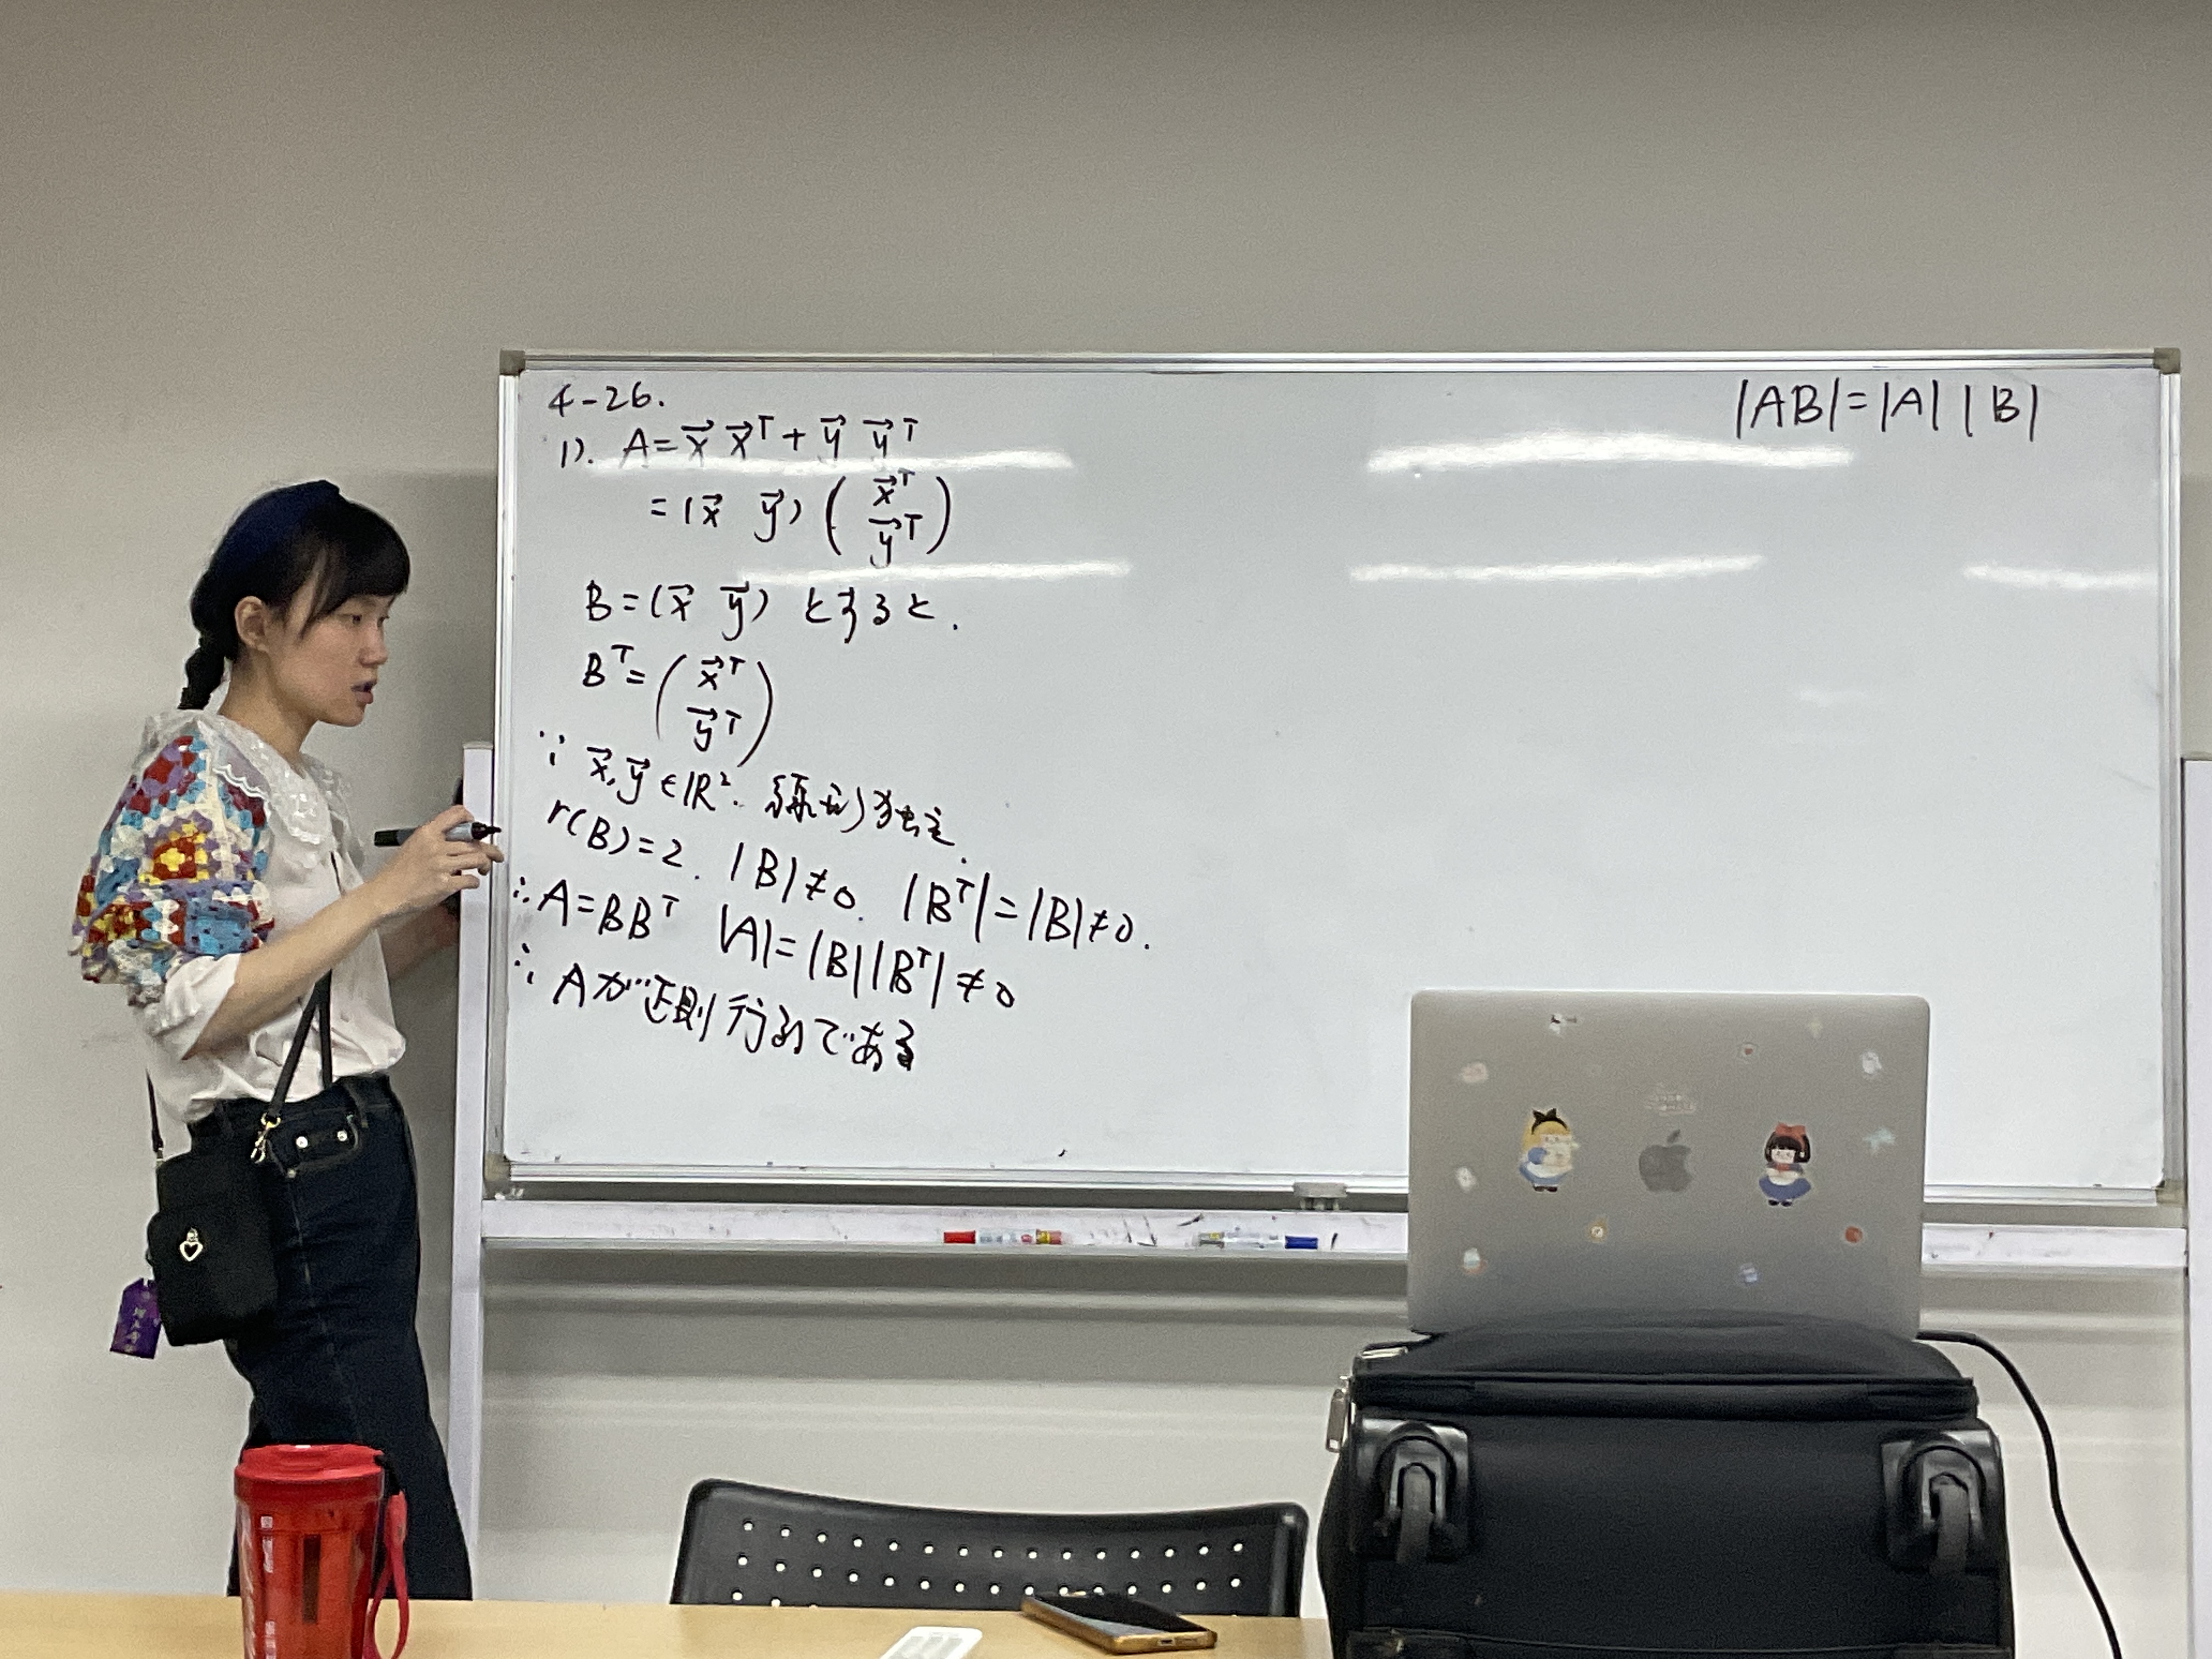 4-26.
1). A = x⃗ x⃗ᵀ + y⃗ y⃗ᵀ
= (x⃗ y⃗) ( x⃗ᵀ
y⃗ᵀ )
B = (x⃗ y⃗) とすると.
Bᵀ = ( x⃗ᵀ
y⃗ᵀ )
∵ x⃗, y⃗ ∈ ℝ². 線形独立.
r(B) = 2. |B| ≠ 0. |Bᵀ| = |B| ≠ 0.
∴ A = BBᵀ |A| = |B| |Bᵀ| ≠ 0
∴ Aが正則行列である
|AB| = |A| |B|